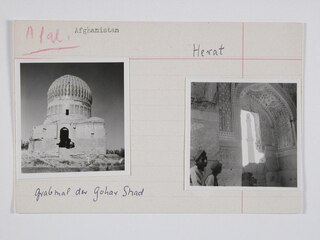 Afghanistan
Herat
Grabmal der Gohar Shad